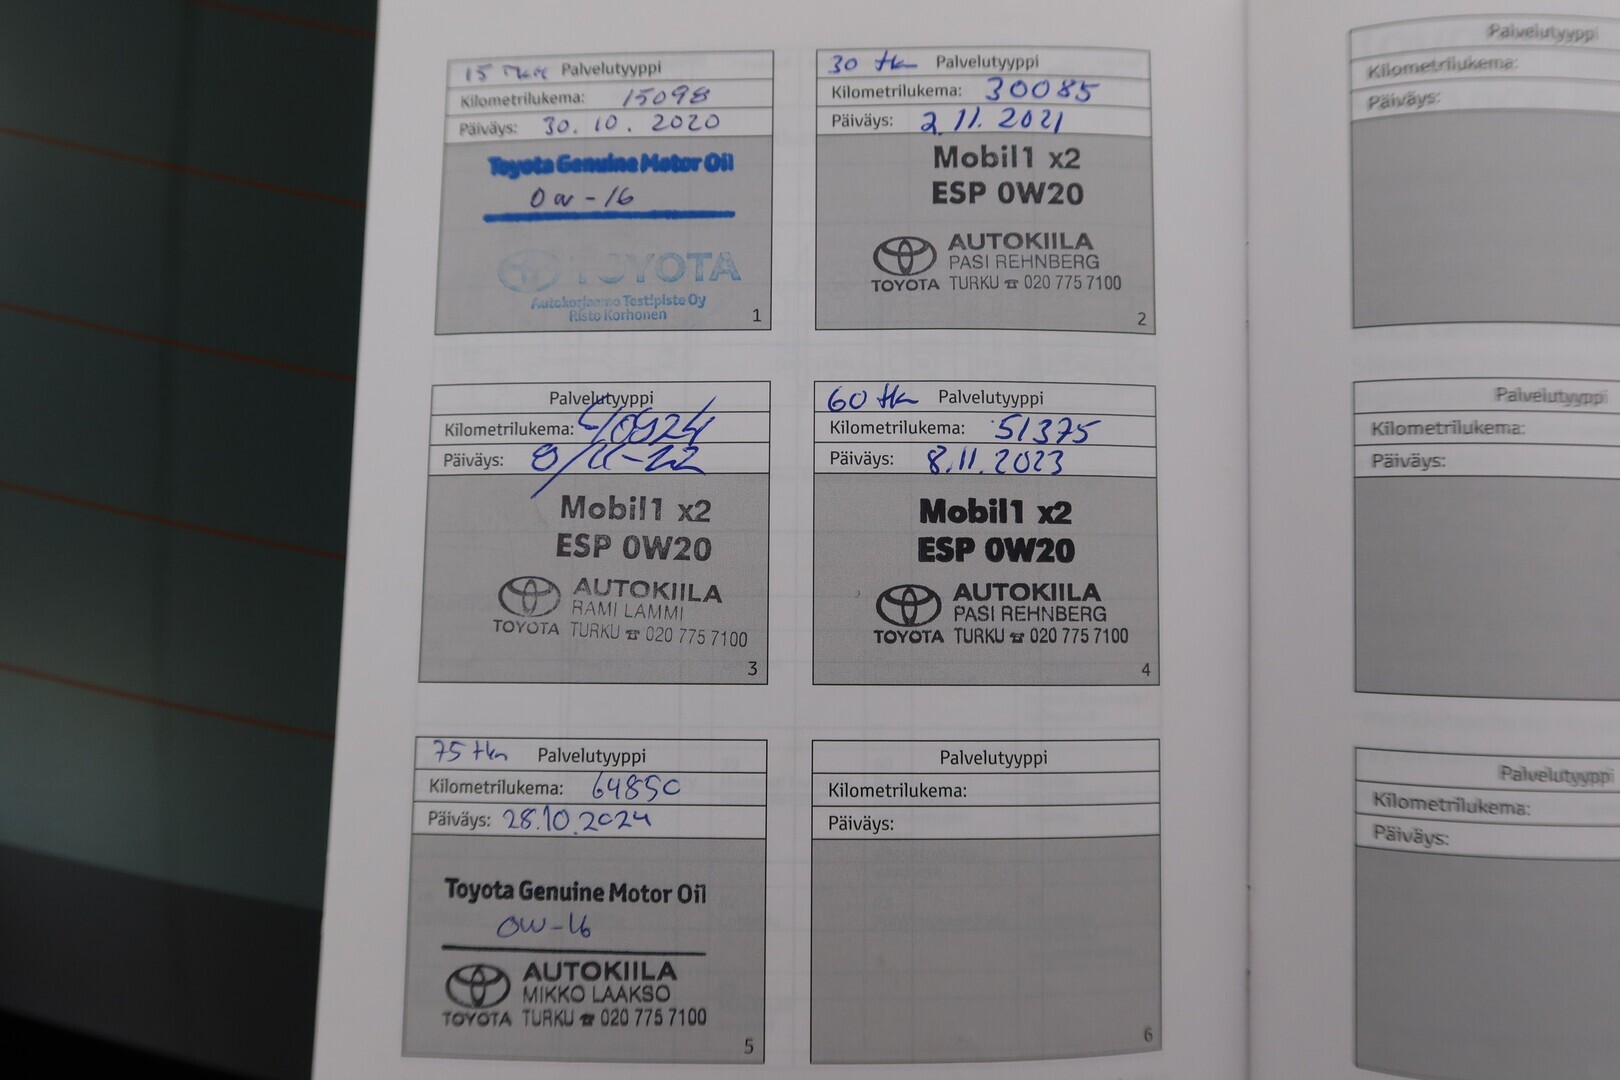 15 tkm Palvelutyyppi
Kilometrilukema: 15098
Päiväys: 30.10.2020
Toyota Genuine Motor Oil
0w-16
TOYOTA
Autokorjaamo Testipiste Oy
Risto Korhonen
1
30 tkm Palvelutyyppi
Kilometrilukema: 30085
Päiväys: 2.11.2021
Mobil1 x2
ESP 0W20
AUTOKIILA
PASI REHNBERG
TOYOTA TURKU ☎ 020 775 7100
2
Palvelutyyppi
Kilometrilukema: 40924
Päiväys: 8/11-22
Mobil1 x2
ESP 0W20
AUTOKIILA
RAMI LAMMI
TOYOTA TURKU ☎ 020 775 7100
3
60 tkm Palvelutyyppi
Kilometrilukema: 51375
Päiväys: 8.11.2023
Mobil1 x2
ESP 0W20
AUTOKIILA
PASI REHNBERG
TOYOTA TURKU ☎ 020 775 7100
4
75 tkm Palvelutyyppi
Kilometrilukema: 64850
Päiväys: 28.10.2024
Toyota Genuine Motor Oil
0W-16
AUTOKIILA
MIKKO LAAKSO
TOYOTA TURKU ☎ 020 775 7100
5
Palvelutyyppi
Kilometrilukema:
Päiväys:
6
Palvelutyyppi
Kilometrilukema:
Päiväys:
Palvelutyyppi
Kilometrilukema:
Päiväys:
Palvelutyyppi
Kilometrilukema:
Päiväys: